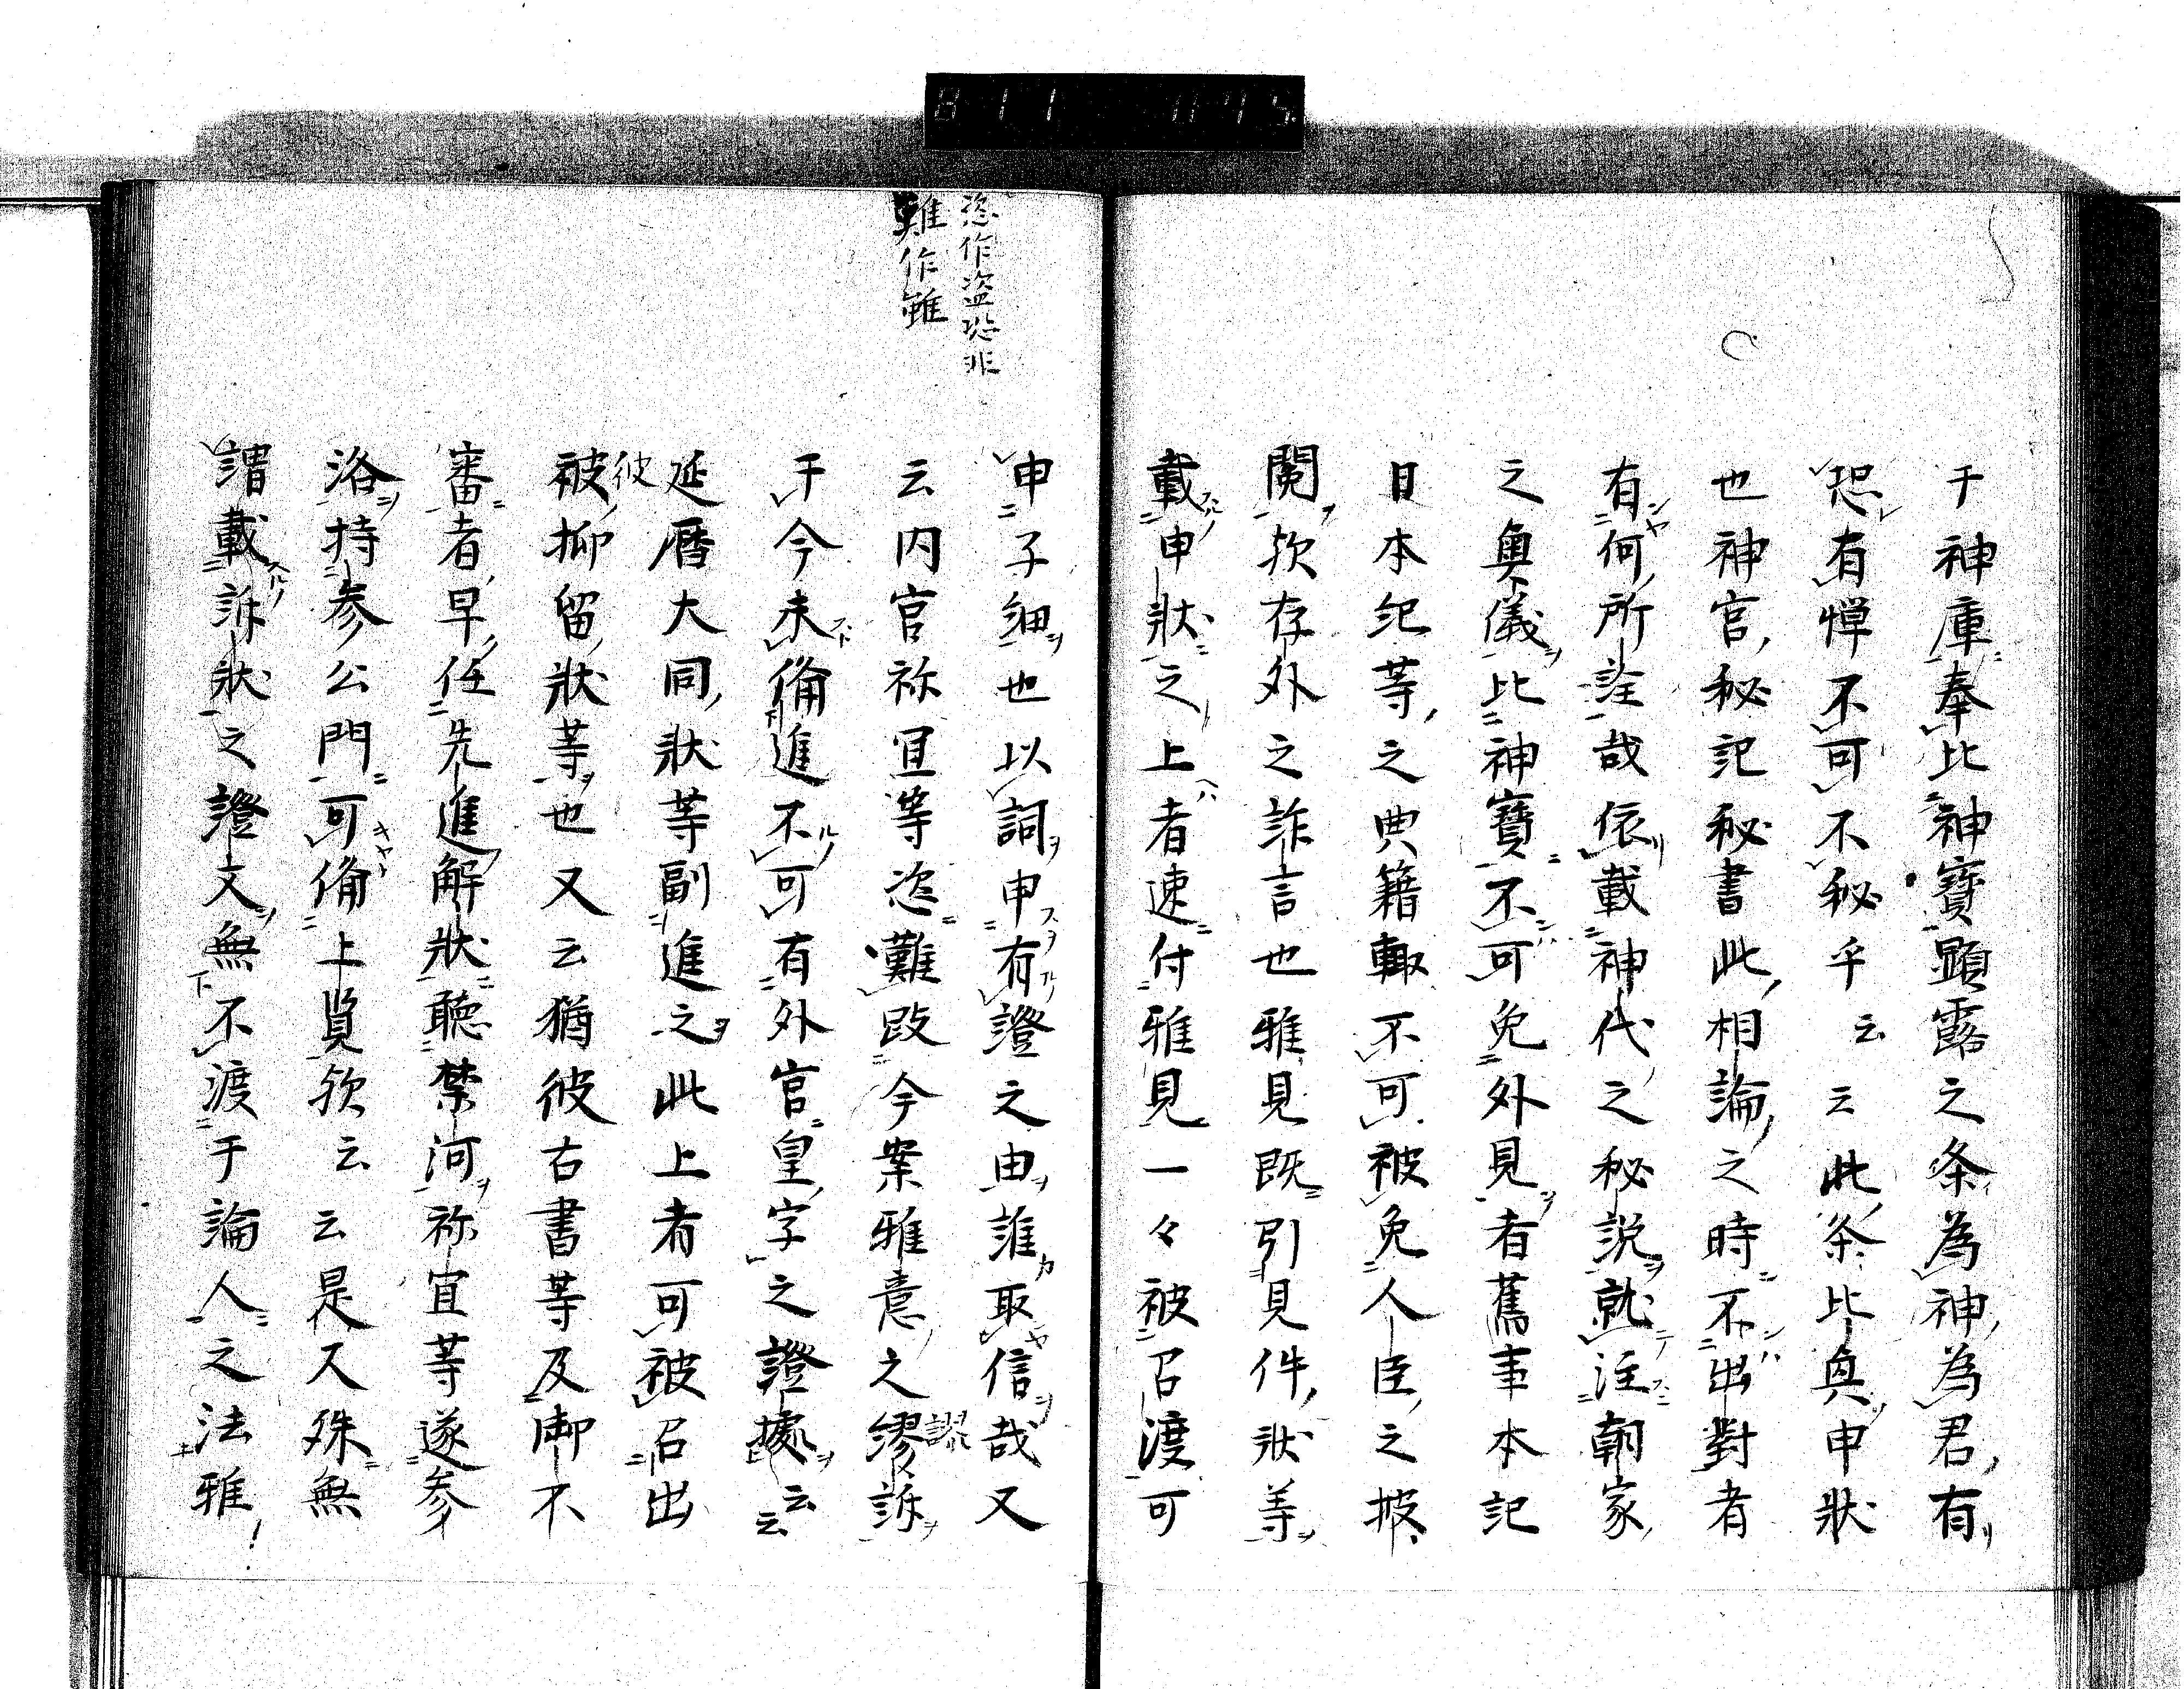 于神庫奉比神寶顕露之条為神為君有
恐有憚不可不秘乎云云此条比奥申状
也神官秘記秘書此相論之時不出對者
有何所詮哉依載神代之秘説就注朝家
之奥儀比神寶不可免外見者舊事本記
日本紀等之典籍輙不可被免人臣之披
閲欤存外之詐言也雅見既引見件状等
載申状之上者速付雅見一々被召渡可
恣作盗恐非
難作雖
申子細也以詞申有證之由誰取信哉又
云内官祢宜等恣難改今案雅意之繆訴
謬
于今未備進不可有外官皇字之證據云云
延暦大同状等副進之此上者可被召出
彼
被抑留状等也又云猶彼古書等及御不
審者早任先進解状聴禁河祢宜等遂参
洛持参公門可備上覧欤云云是又殊無
謂載訴状之證文無不渡于論人之法雅